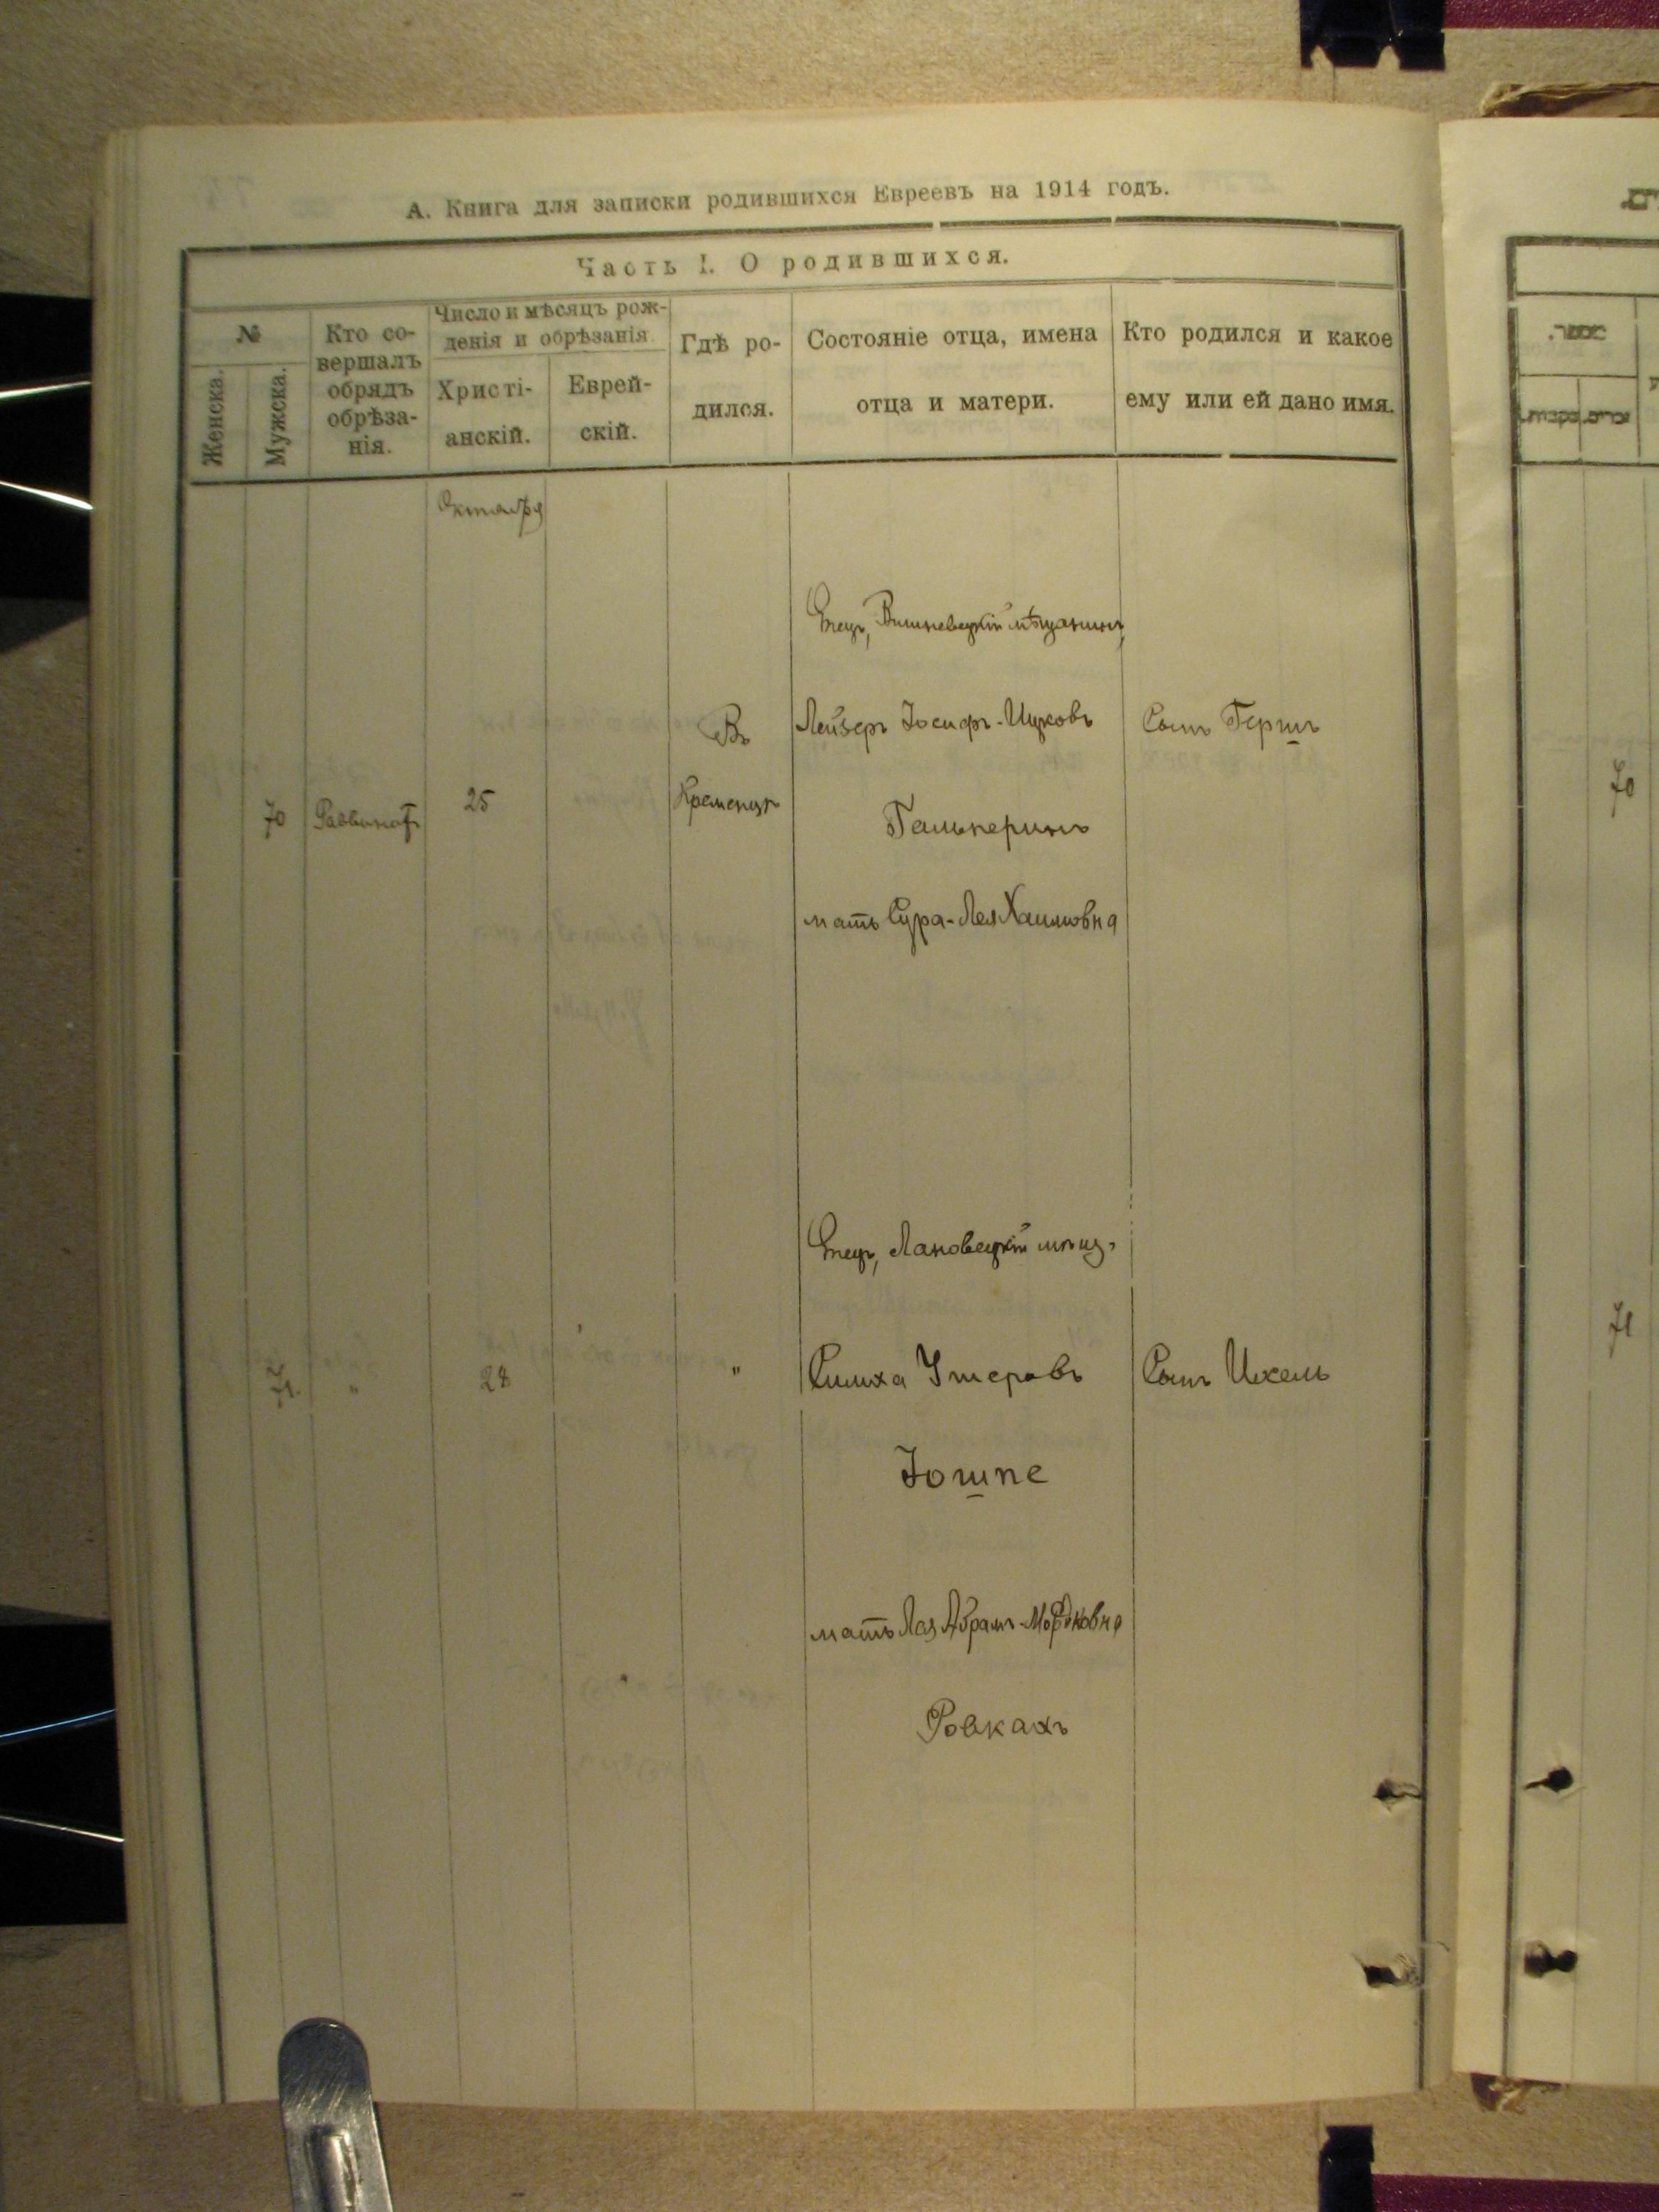 А. Книга для записки родившихся Евреевъ на 1914 годъ.
Часть I. О родившихся.
№
Женска.
Мужска.
Кто со-
вершалъ
обрядъ
обрѣза-
нія.
Число и мѣсяцъ рож-
денія и обрѣзанія
Христі-
анскій.
Еврей-
скій.
Гдѣ ро-
дился.
Состояніе отца, имена
отца и матери.
Кто родился и какое
ему или ей дано имя.
Октября
Отецъ, Вишневецкій мѣщанинъ,
Въ
Лейзеръ Іосифъ-Ицковъ
Сынъ Гершъ
70
25
Кременцѣ
Гальперинъ
мать Сура-Лея Хаимовна
Отецъ, Лановецкій мѣщ.
71
"
28
"
Симха Ушеровъ
Сынъ Ихель
Іошпе
мать Лея Абрамъ-Мордковна
70
71